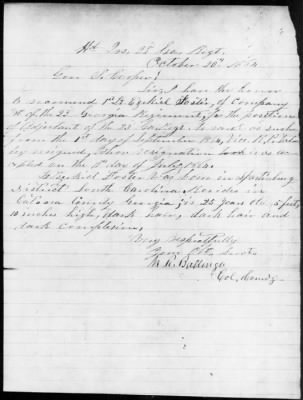 Hd Qrs, 23 Geo Regt,
October 20th 1864
Genl S. Cooper;
Sir, I have the honor
to recommend 1st Lt Ezekiel Foster, of Company
of the 23 Georgia Regiment, for the position
of Adjutant of the 23 Ga Regt to rank as such
from the 1st day of September 1864, Vice
resigned, whose resignation was ac
cepted on the day of July 1864.
Ezekiel Foster was born in Spartanburg
District South Carolina, resides in
Catoosa County Georgia, is 25 years old, 5 feet,
10 inches high, dark hair, dark hair and
dark complexion,
Very Respectfully
Your Obt. Servt.
M. R. Ballenger
Col, Comdg